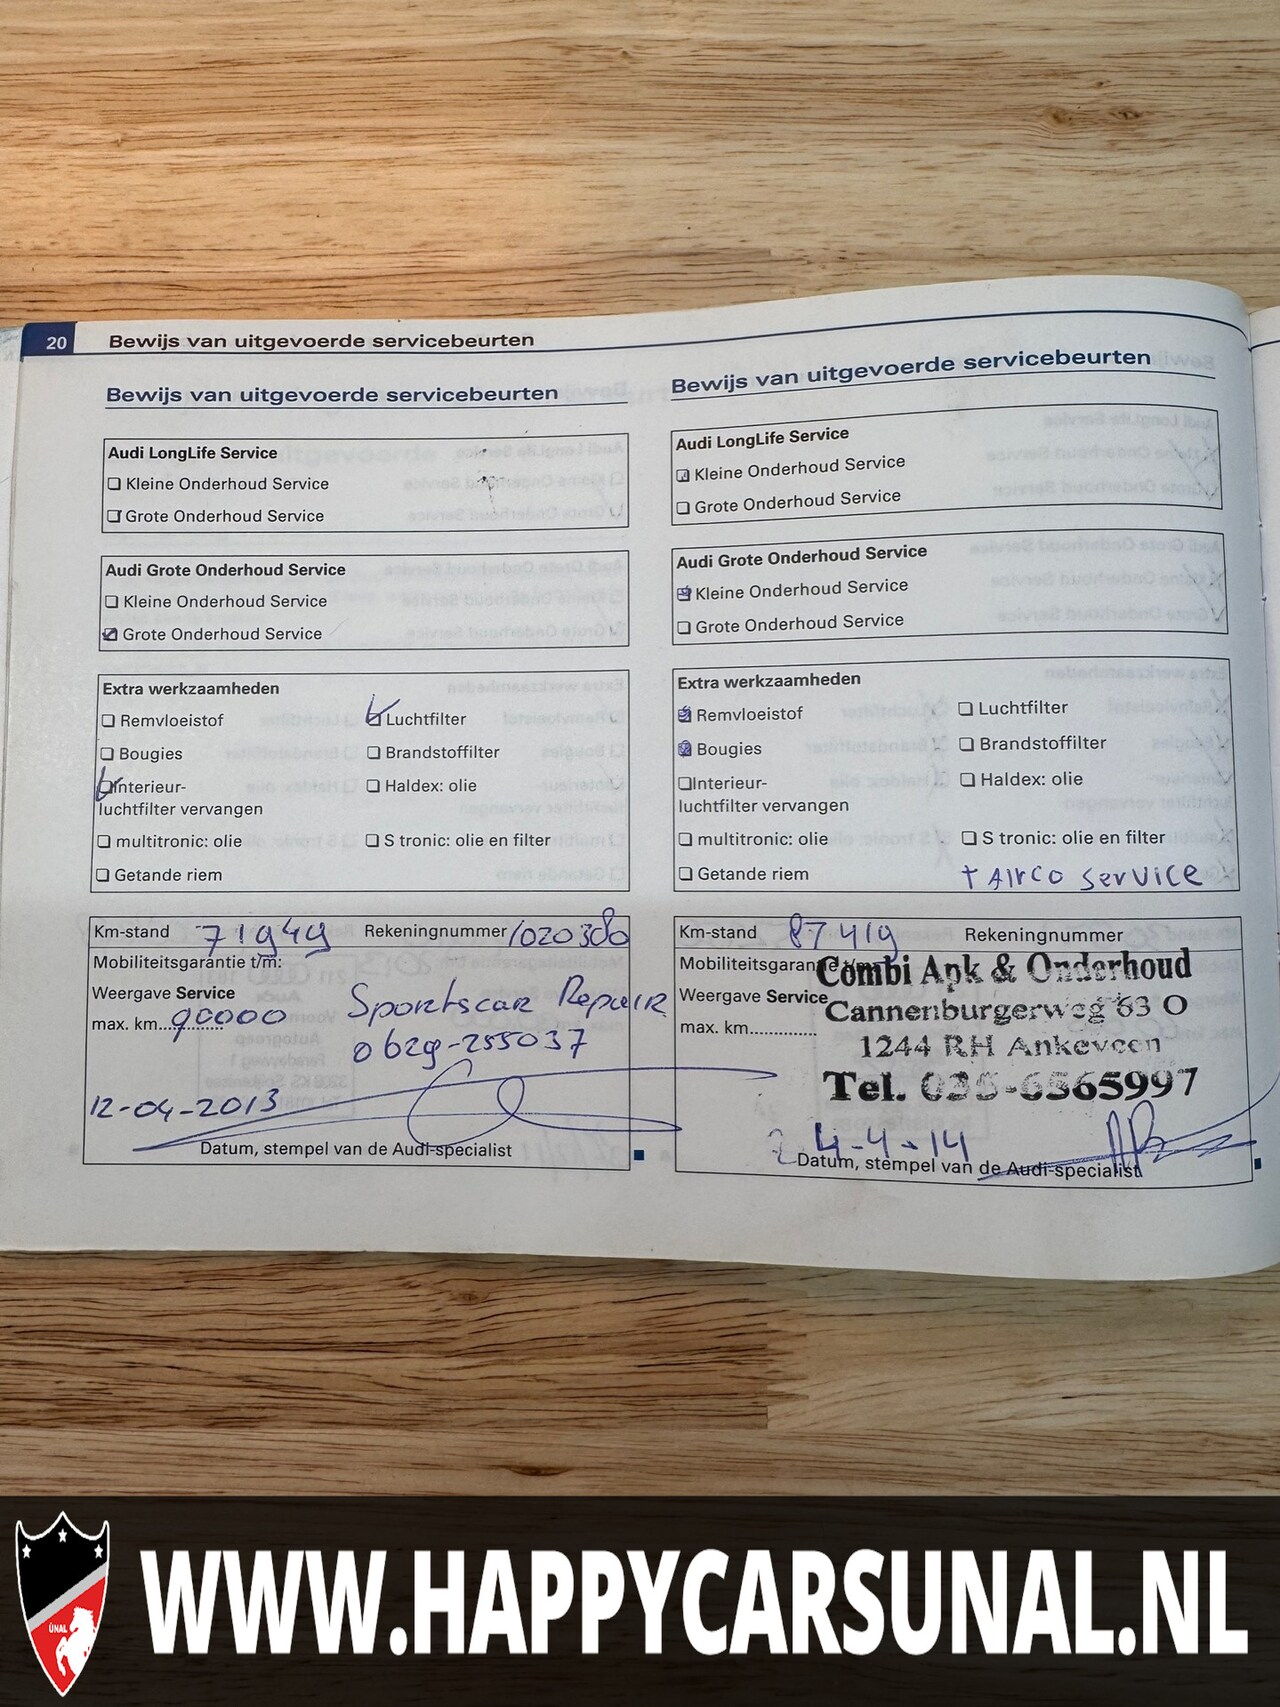 20
Bewijs van uitgevoerde servicebeurten
Bewijs van uitgevoerde servicebeurten
Audi LongLife Service
Kleine Onderhoud Service
Grote Onderhoud Service
Audi Grote Onderhoud Service
Kleine Onderhoud Service
Grote Onderhoud Service
Extra werkzaamheden
Remvloeistof
Luchtfilter
Bougies
Brandstoffilter
Interieur-
luchtfilter vervangen
Haldex: olie
multitronic: olie
S tronic: olie en filter
Getande riem
Km-stand 71949 Rekeningnummer 1020380
Mobiliteitsgarantie t/m:
Weergave Service
max. km. 90000
Sportscar Repair
0629-255037
12-04-2013
Datum, stempel van de Audi-specialist
Bewijs van uitgevoerde servicebeurten
Audi LongLife Service
Kleine Onderhoud Service
Grote Onderhoud Service
Audi Grote Onderhoud Service
Kleine Onderhoud Service
Grote Onderhoud Service
Extra werkzaamheden
Remvloeistof
Luchtfilter
Bougies
Brandstoffilter
Interieur-
luchtfilter vervangen
Haldex: olie
multitronic: olie
S tronic: olie en filter
Getande riem
+ AIRCO SERVICE
Km-stand 87419 Rekeningnummer
Mobiliteitsgarantie t/m:
Weergave Service
max. km.
Combi Apk & Onderhoud
Cannenburgerweg 63 O
1244 RH Ankeveen
Tel. 035-6565997
24-4-14
Datum, stempel van de Audi-specialist
ÜNAL
WWW.HAPPYCARSUNAL.NL